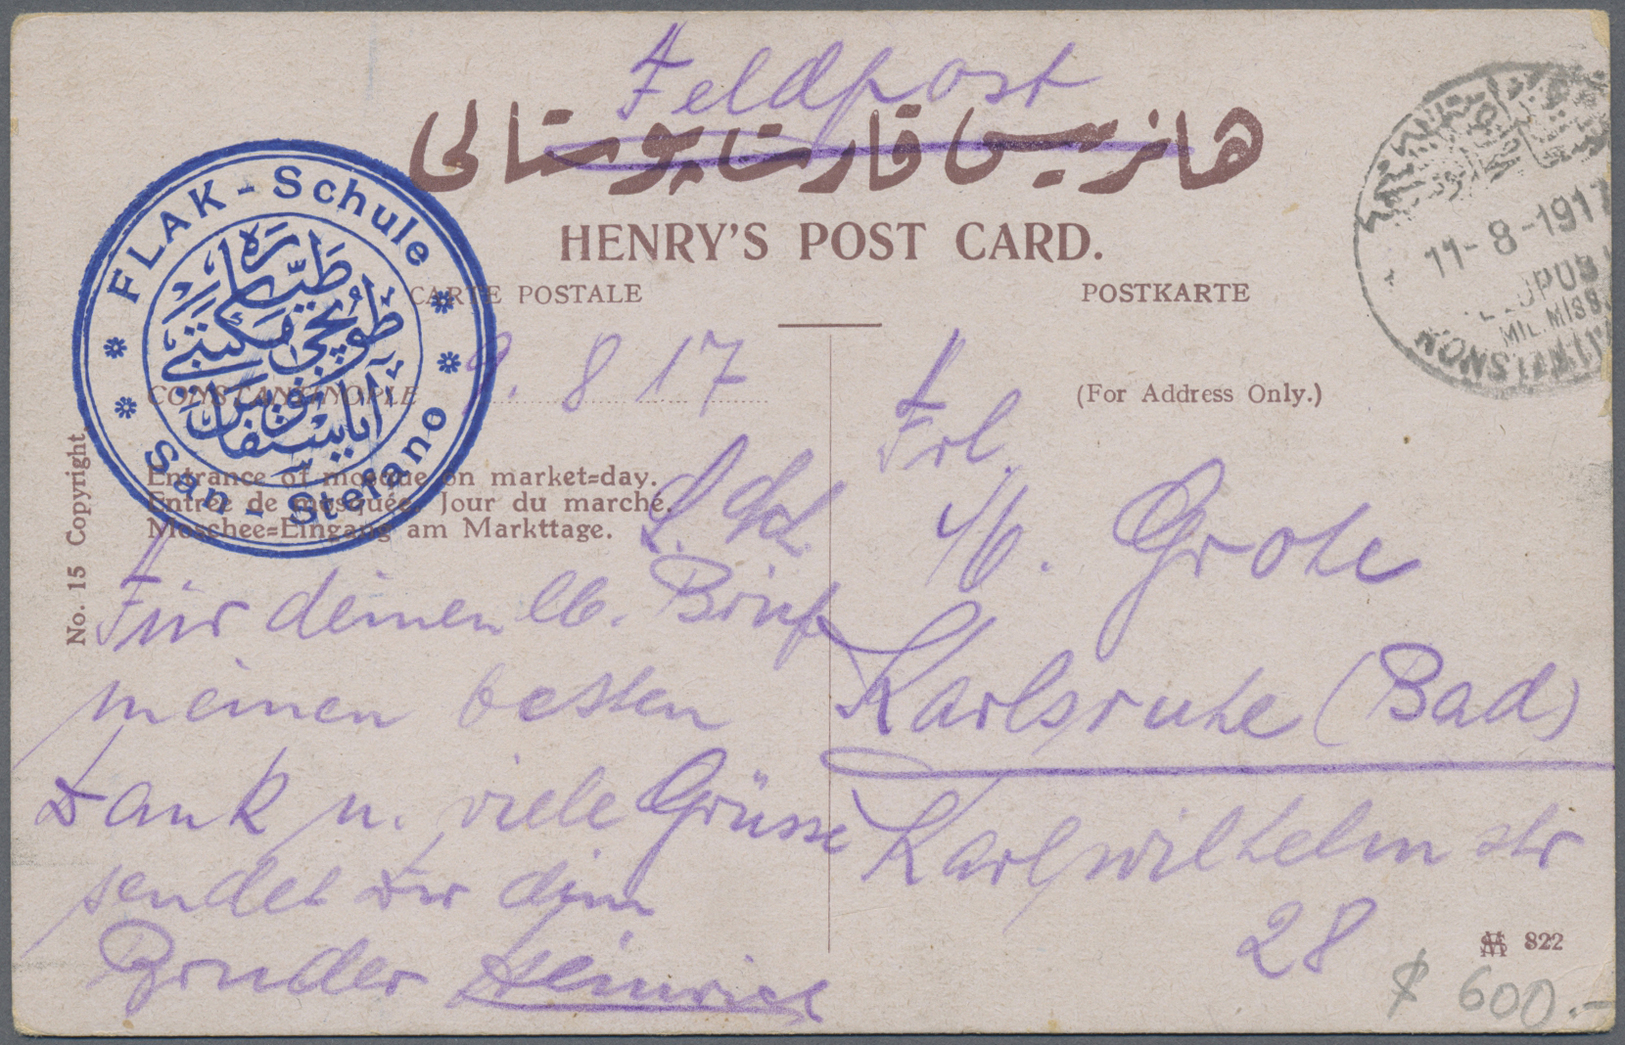 Feldpost
هانریس قارت پوستالی
HENRY'S POST CARD.
CARTE POSTALE
POSTKARTE
FLAK-Schule
طیاره
طوپجی مکتبی
آیاستفانوس
San-Stefano
11-8-1917
MIL.MISS.
KONSTANTIN
CONSTANTINOPLE
9. 8 17
(For Address Only.)
Entrance of mosque on market=day.
Entrée de mosquée. Jour du marché.
Moschee=Eingang am Markttage.
No. 15 Copyright.
Für deinen lb. Brief
meinen besten
Dank u. viele Grüsse
sendet dir dein
Bruder Heinrich
Frl.
Grohe
Karlsruhe (Bad)
Karlwilhelm str
28
822
$ 600.-